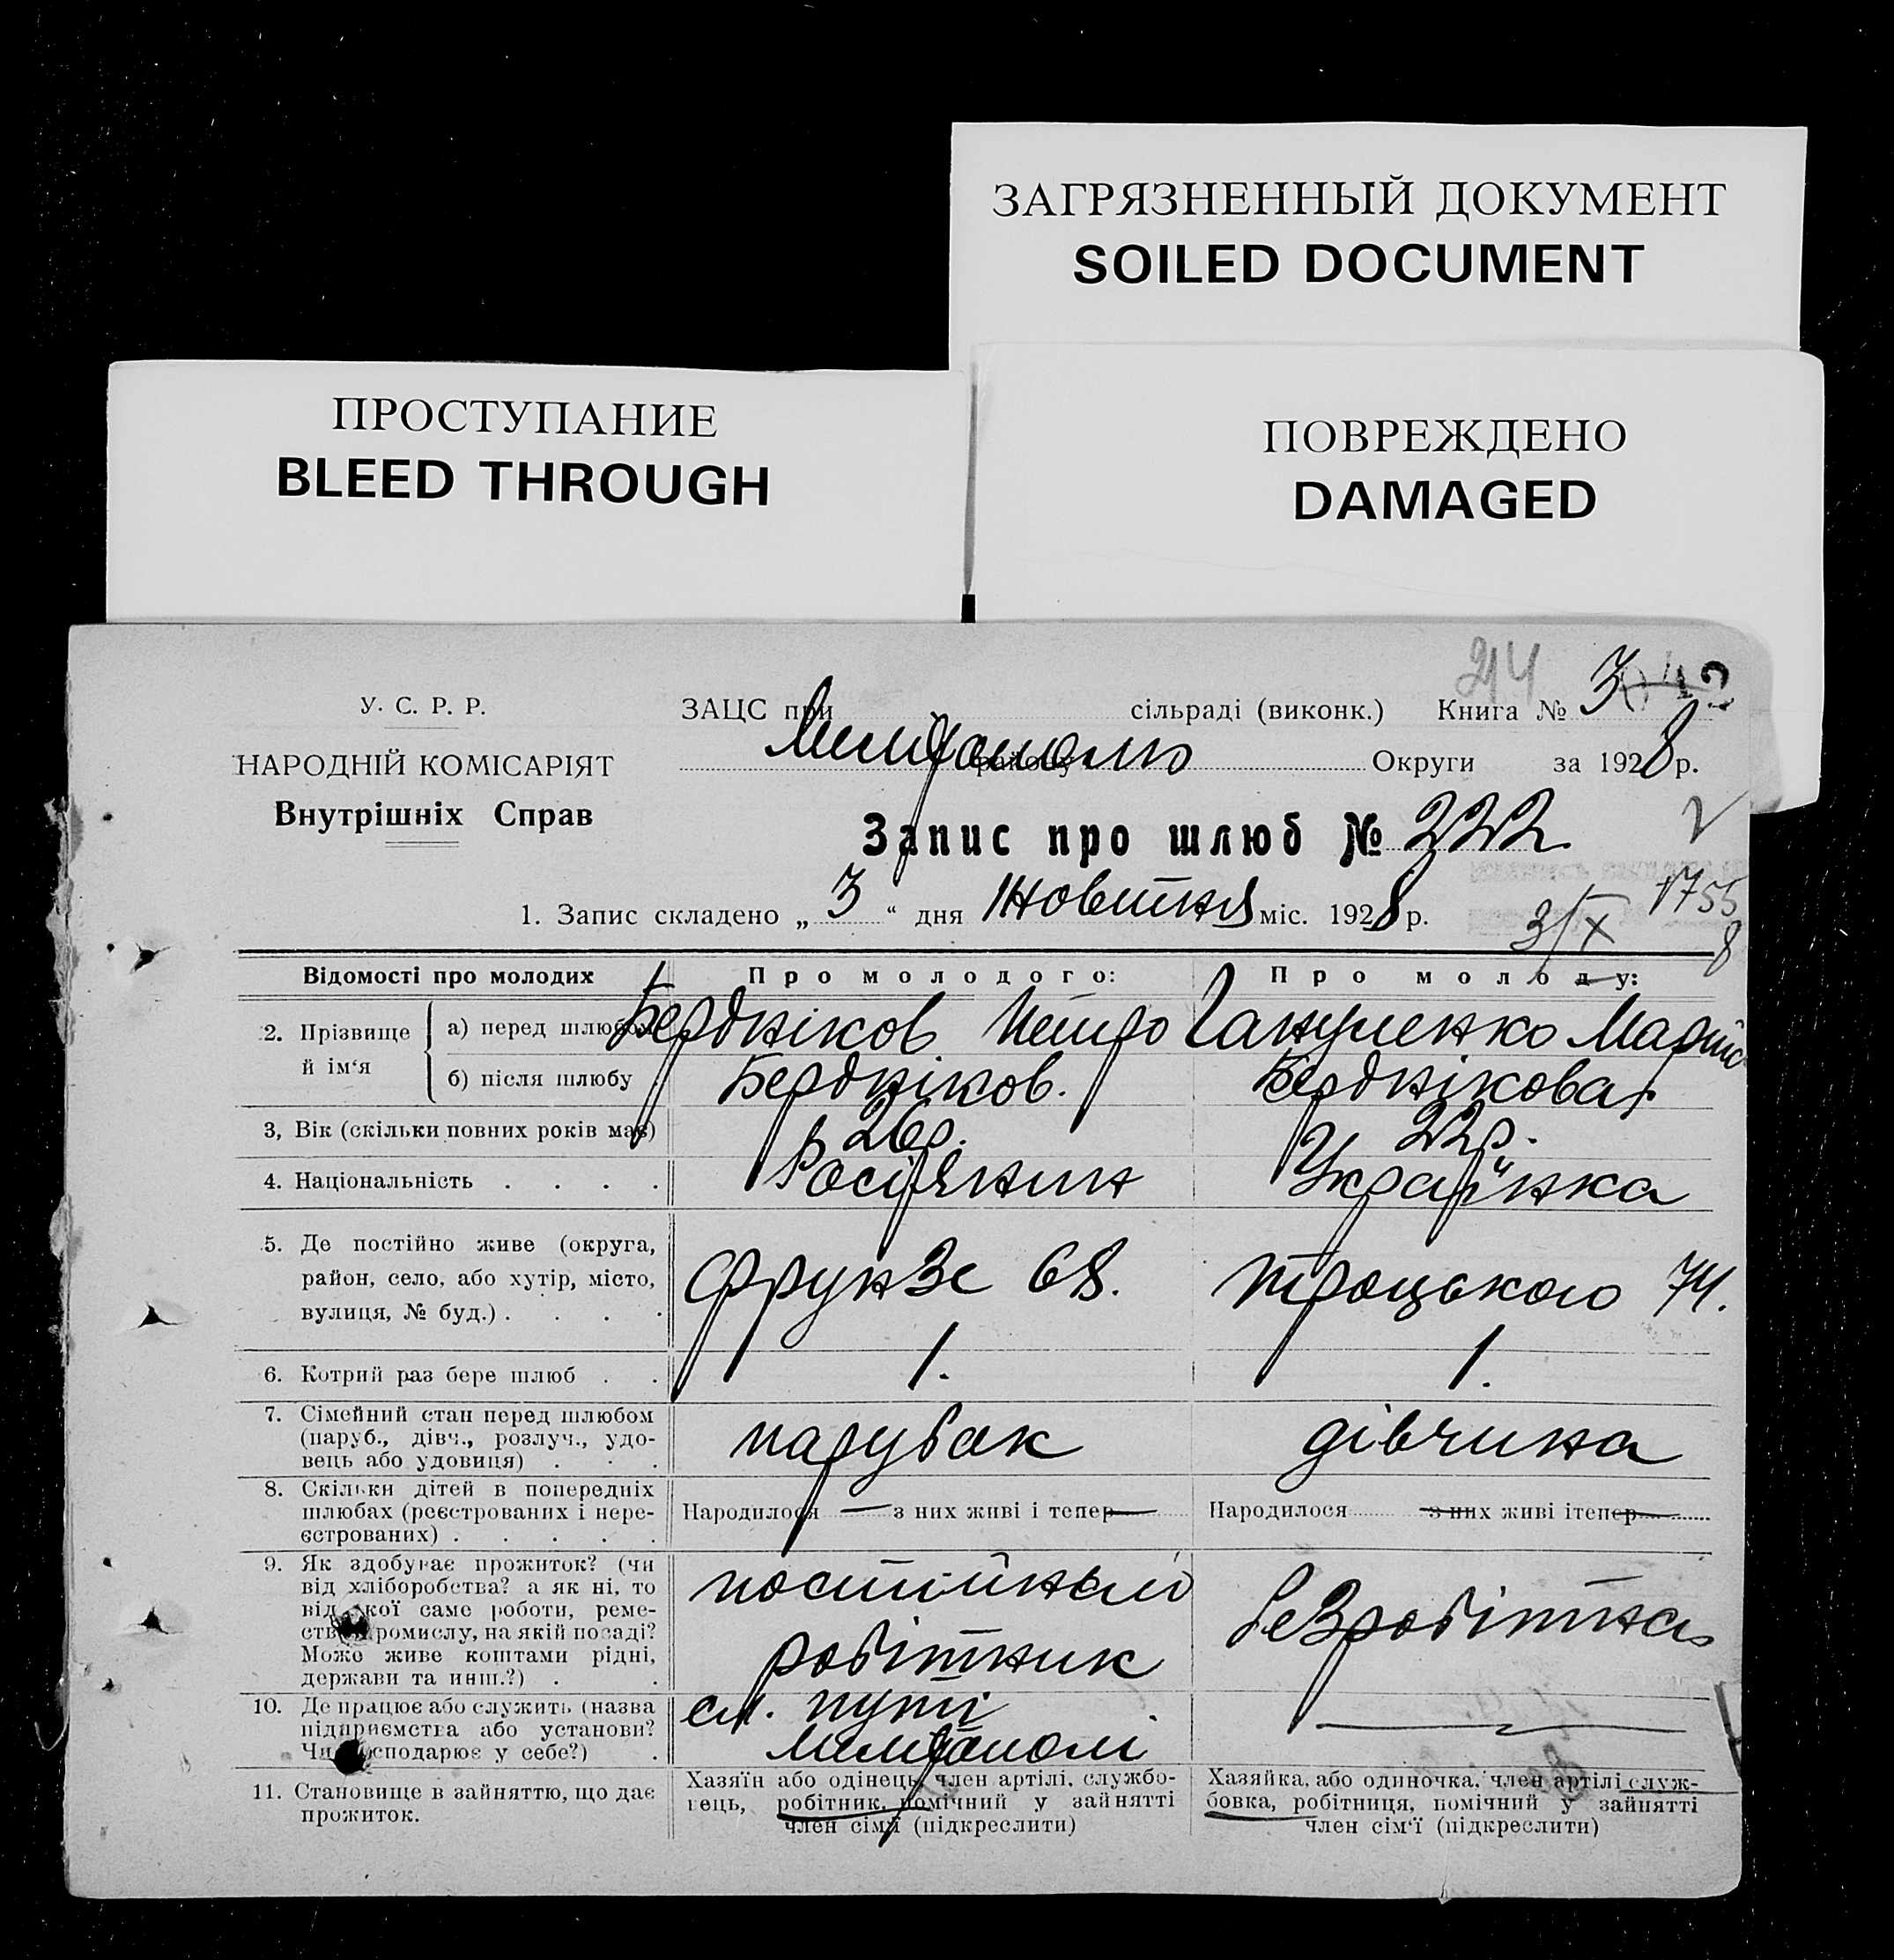 ЗАГРЯЗНЕННЫЙ ДОКУМЕНТ
SOILED DOCUMENT
ПРОСТУПАНИЕ
BLEED THROUGH
ПОВРЕЖДЕНО
DAMAGED
У. С. Р. Р.
НАРОДНІЙ КОМІСАРІЯТ
Внутрішніх Справ
214
ЗАЦС при сільраді (виконк.) Книга № 3
району Округи за 1928 р.
Запис про шлюб № 222
1. Запис складено „ 3 “ дня Жовтня міс. 1928 р.
3/X 1755
8
Відомості про молодих Про молодого: Про молоду:
2. Прізвище й ім‘я
а) перед шлюбом Бердніков Петро Ганущенко Марія
б) після шлюбу Бердніков. Берднікова
3, Вік (скільки повних років має) 26р. 22р.
4. Національність . . . . Росіянин Українка
5. Де постійно живе (округа,
район, село, або хутір, місто,
вулиця, № буд.) . . . .
Фрунзе 68. Троцького 74.
6. Котрий раз бере шлюб . . 1. 1.
7. Сімейний стан перед шлюбом
(паруб., дівч., розлуч., удо-
вець або удовиця) . . .
парубак дівчина
8. Скільки дітей в попередніх
шлюбах (реєстрованих і нере-
єстрованих) . . . . .
Народилося — з них живі і тепер —
Народилося з них живі ітепер
9. Як здобуває прожиток? (чи
від хліборобства? а як ні, то
від якої саме роботи, реме-
ства промислу, на якій посаді?
Може живе коштами рідні,
держави та инш.?) . .
постійний
робітник
безробітна
10. Де працює або служить (назва
підприємства або установи?
Чи господарює у себе?) .
сл. путі
Мелітополі
11. Становище в зайняттю, що дає
прожиток.
Хазяїн або одінець, член артілі, службо-
вець, робітник, помічний у зайнятті
член сім‘ї (підкреслити)
Хазяйка, або одиночка, член артілі служ-
бовка, робітниця, помічний у зайнятті
член сім‘ї (підкреслити)